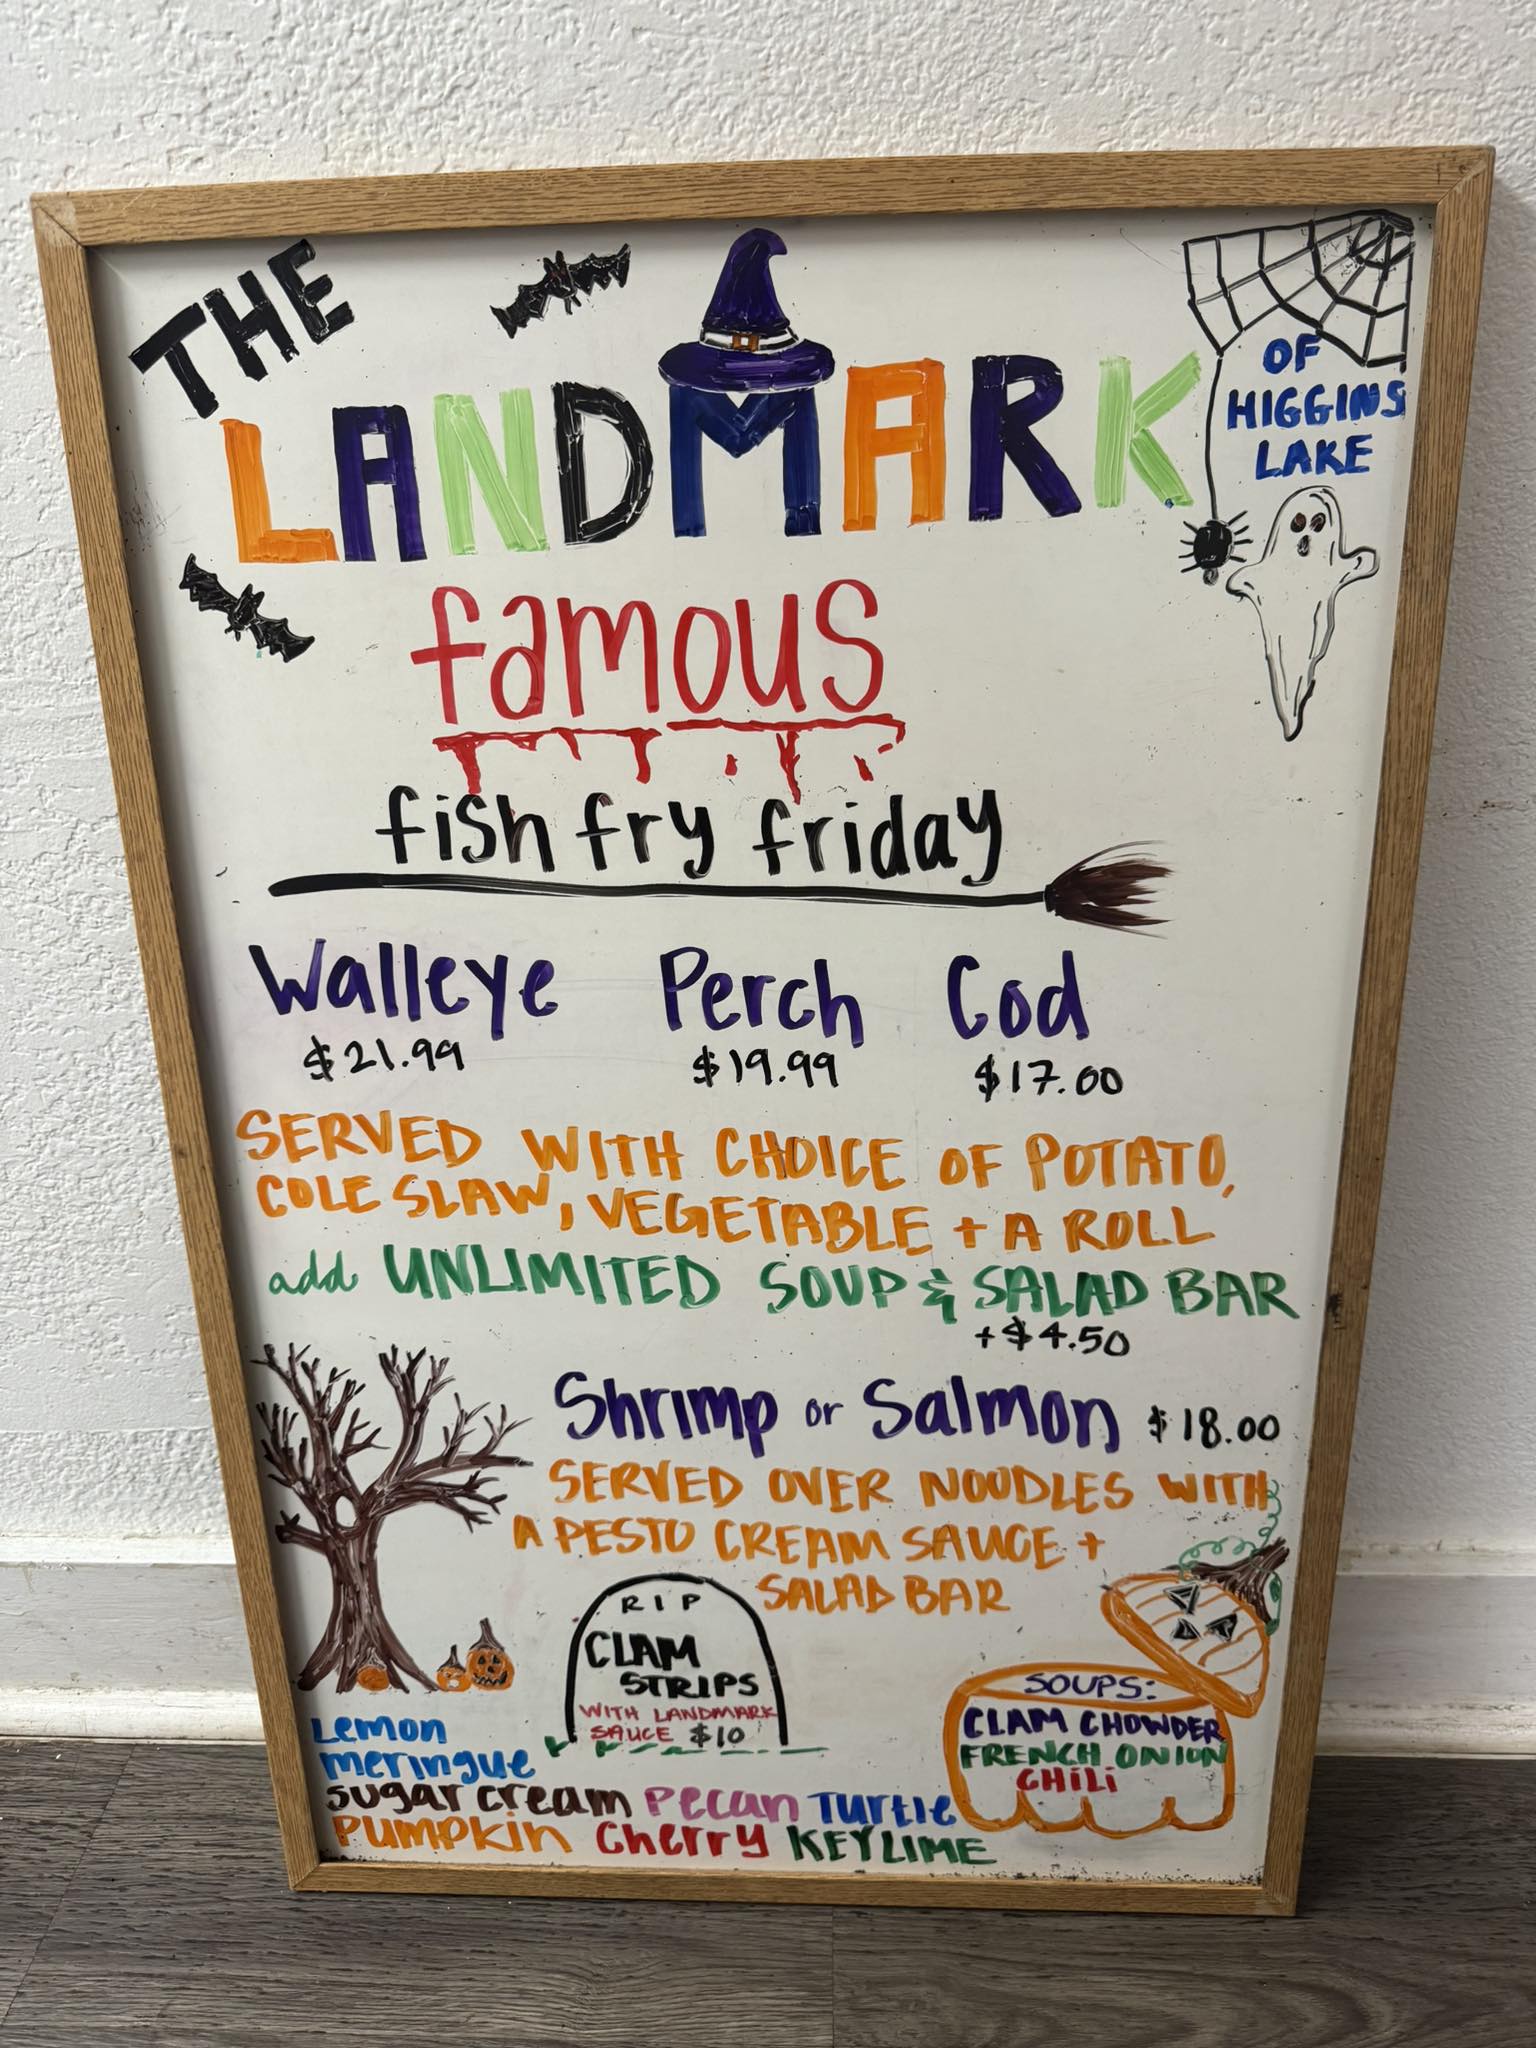 THE
LANDMARK
OF
HIGGINS
LAKE
famous
fish fry friday
Walleye Perch Cod
$21.99 $19.99 $17.00
SERVED WITH CHOICE OF POTATO,
COLE SLAW, VEGETABLE + A ROLL
add UNLIMITED SOUP & SALAD BAR
+$4.50
Shrimp or Salmon $18.00
SERVED OVER NOODLES WITH
A PESTO CREAM SAUCE +
SALAD BAR
RIP
CLAM
STRIPS
WITH LANDMARK
SAUCE $10
SOUPS:
CLAM CHOWDER
FRENCH ONION
CHiLi
Lemon
meringue
sugar cream Pecan Turtle
Pumpkin Cherry KEYLIME